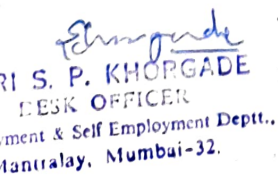 RI S. P. KHORGADE
DESK OFFICER
yment & Self Employment Deptt.,
Mantralay, Mumbai-32.